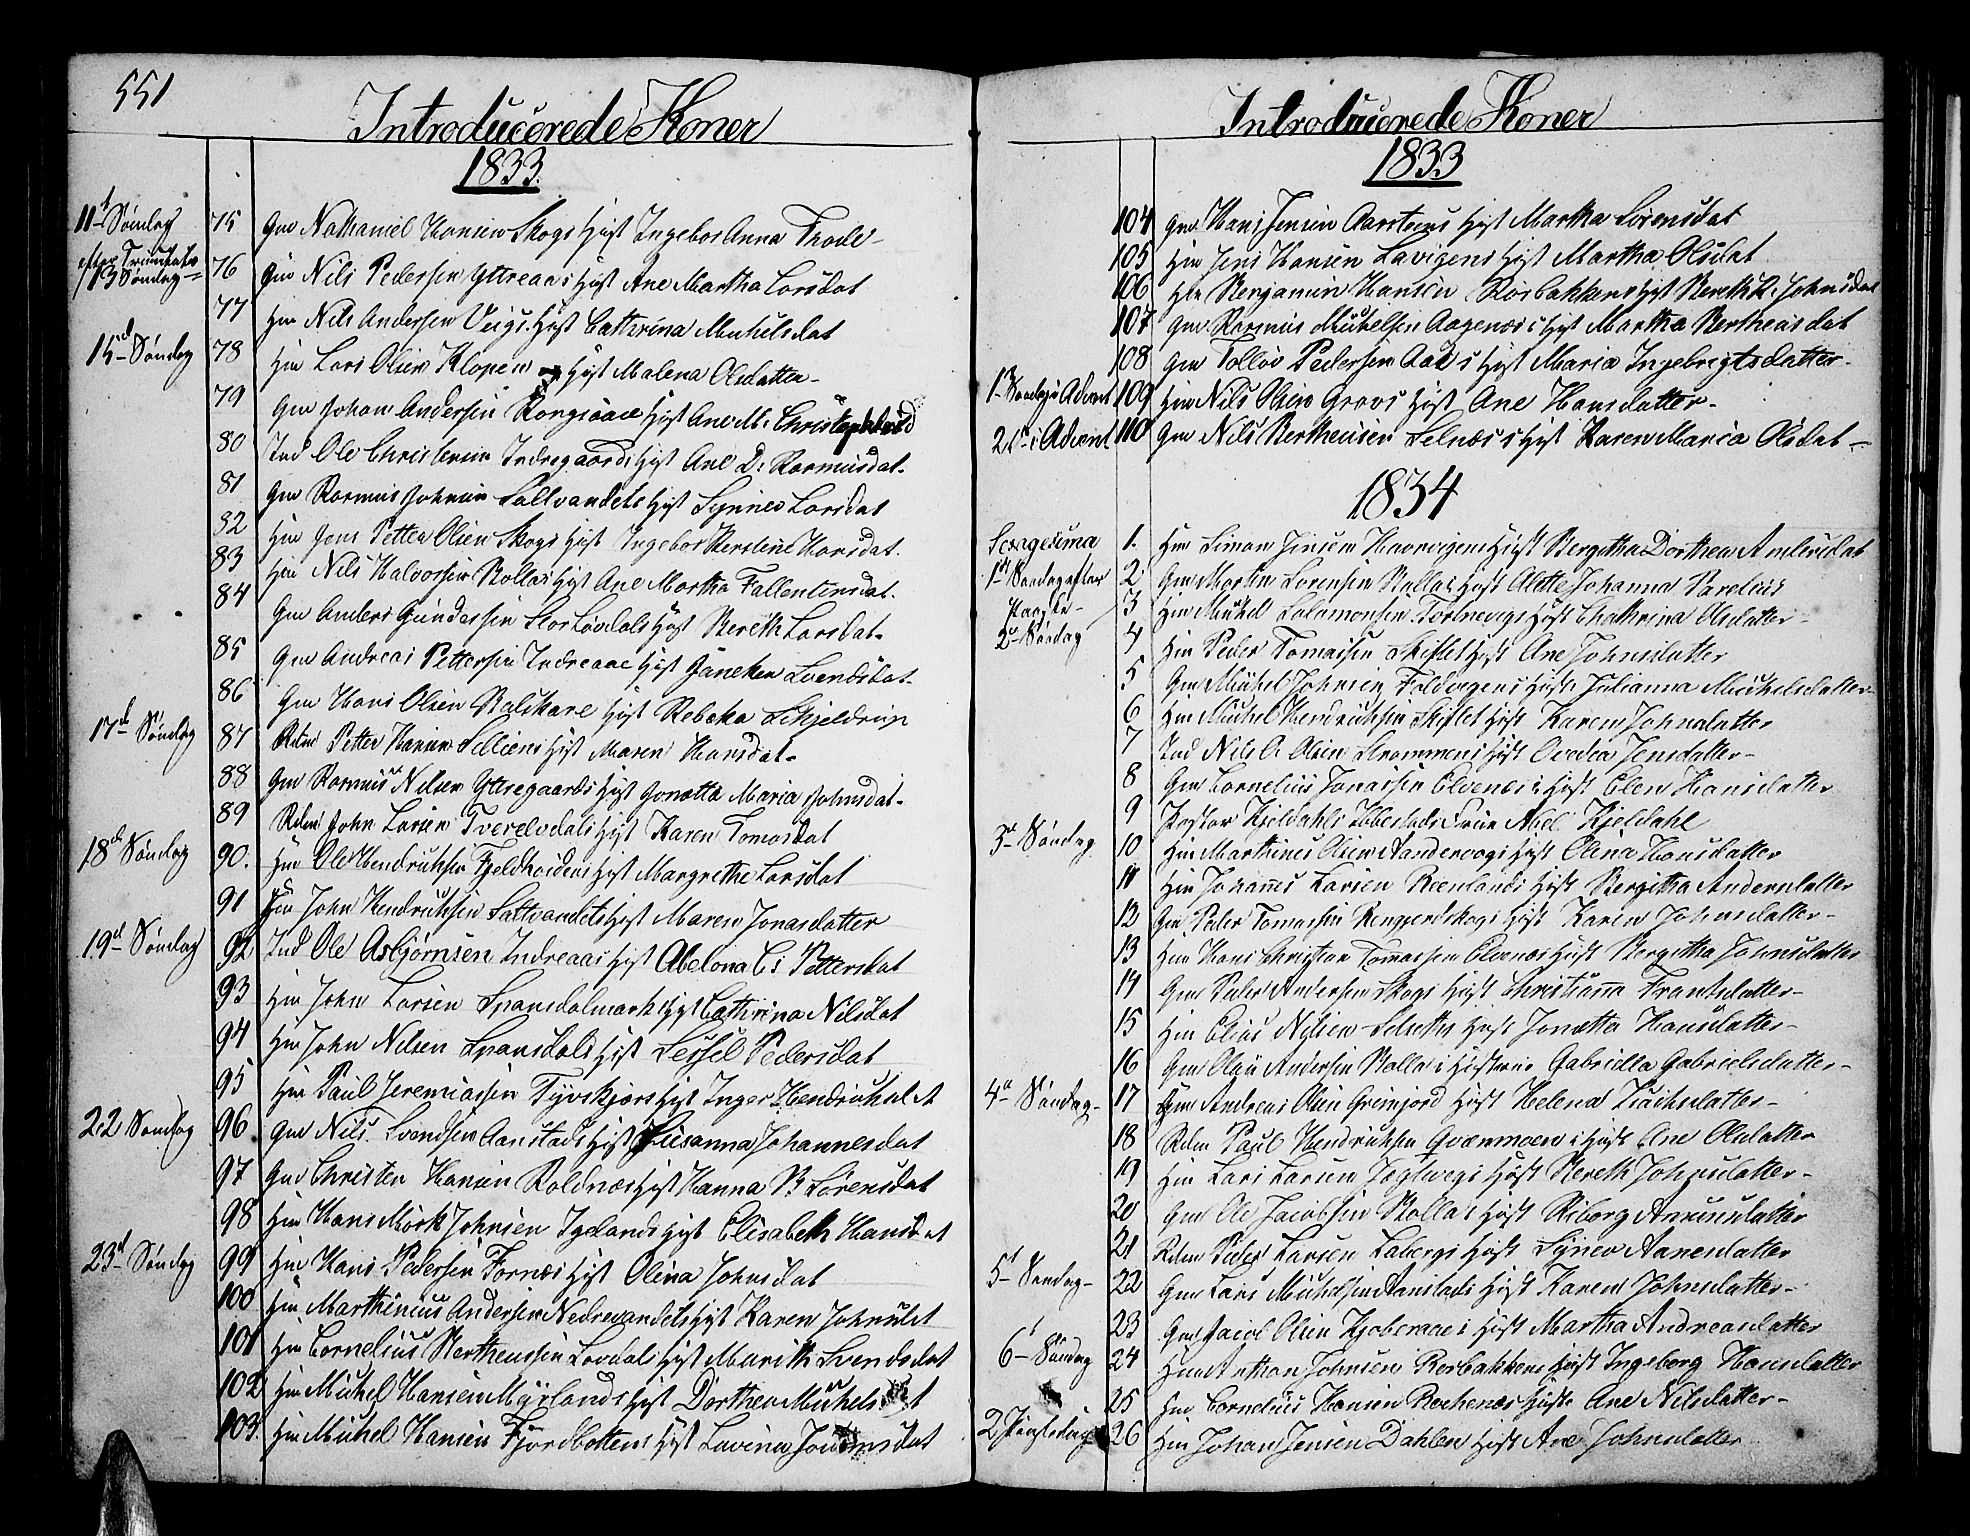 551
Introducerede Koner
1833.
11te Søndag efter Trinitatis
75 Gm Nathaniel Hansen Skogs Hust Ingebor Anna Trode
13 Søndag
76 Gm Nils Pedersen Yttreaas Hust Ane Martha Larsdat
77 Hm Nils Andersen Veigs Hust Cathrina Michelsdat
15d Søndag
78 Hm Lars Olsen Klopen Hust Malena Olsdatter
79 Gm Johan Andersen Hust Ane M. Christophersd
80 Ind Ole Christensen Indregaards Hust Ane D. Rasmusdat
81 Gm Rasmus Johnsen Saltvandets Hust Synnev Larsdat
82 Hm Jens Petter Olsen Skogs Hust Ingebor Kerstine Hansdat
83 Hm Nils Halvorsen Rollas Hust Ane Martha Fallentinsdat
84 Gm Anders Gundersen Storløvdals Hust Bereth Larsdat
85 Gm Andreas Pettersen Indreaae Hust Janeken Svendsdat
86 Gm Hans Olsen Hust Rebeka Schjeldrup
17d Søndag
87 Rdm Petter Hansen Selliens Hust Maren Hansdat
88 Gm Rasmus Nilsen Yttregaards Hust Jonetta Maria Johnsdat
89 Rdm John Larsen Tverelvdals Hust Karen Tomasdat
18d Søndag
90. Hm Ole Hendriksen Fjeldheidens Hust Margrethe Larsdat
91 Hm John Hendriksen Saltvandets Hust Maren Jonasdatter
19d Søndag
92 Ind Ole Asbjørnsen Indreaas Hust Abelona C. Pettersdat
93 Hm John Larsen Spansdalmark Hust Cathrina Nilsdat
94 Hm John Nilsen Spansdals Hust Sessel Pedersdat
95 Hm Paul Jeremiassen Tyvskjørs Hust Inger Hendriksdat
22 Søndag
96 Gm Nils Svendsen Aanstads Hust Susanna Johannesdat
97 Gm Christen Hansen Roldnæs Hust Hanna B Sørensdat
98 Hm Hans Mørk Johnsen Igelands Hust Elisabeth Hansdat
23d Søndag
99 Hm Hans Pedersen Fornæs Hust Olina Johnsdat
100 Hm Marthinius Andersen Nedrevandets Hust Karen Johnsdat
101 Hm Cornelius Bertheussen Løvdals Hust Marith Svendsdat
102 Hm Michel Hansen Myrlands Hust Dorthea Michelsdat
103. Hm Michel Hansen Fjordbottens Hust Lavina Jonsdat
Introducerede Koner
1833
104 Gm Hans Jensen Aarsteens Hust Martha Sørensdat
105 Hm Jens Hansen Lavigens Hust Martha Olsdat
106 Hm Benjamin Hansen Rosbakkens Hust Bereth K. Johnsdat
107 Gm Rasmus Michelsen Aagenæs Hust Martha Bertheusdat
108 Gm Tolløv Pedersen Aaes Hust Maria Ingebrigtsdatter
1te Søndag i Advent
109 Hm Nils Olsen Gravs Hust Ane Hansdatter
2den i Advent
110 Gm Nils Bertheusen Selnæs Hust Karen Maria Olsdat
1834
Sexagesima
1. Hm Simon Jensen Havnvigens Hust Bergitha Dorthea Andersdat
1ste Søndag efter Paaske
2 Gm Martin Sørensen Rollas Hust Alette Johanna Parelius
3 Hm Michel Salamonsen Hust Chathrina Olsdatter
2d Søndag
4 Hm Peder Tomassen Skiflet Hust Ane Johnsdatter
5 Gm Michel Johnsen Foldvigens Hust Julianna Michelsdatter
6 Hm Michel Hendriksen Skiflet Hust Karen Johnsdatter
7 Ind Nils O. Olsen Strommens Hust Ovedia Jensdatter
8 Gm Cornelius Jonassen Elvenes Hust Elen Hansdatter
9 Pastor Kjeldahls Ibbestads Frue Abel Kjeldahl
3d Søndag
10 Hm Marthines Olsen Sandervogs Hust Olina Hansdatter
11 Hm Johannes Larsen Reenlands Hust Bergitha Andersdatter
12 Gm Peder Tomassen Hust Karen Johnsdatter
13 Hm Hans Christian Tomassen Elvenæs Hust Bergitha Johnsdatter
14 Gm Peder Andersen Skogs Hust Christianna Frantsdatter
15 Hm Elias Nilsen Hust Jonetta Hansdatter
16 Gm Olaus Andersen Rolla's Hustrue Gabriella Gabrielsdatter
4d Søndag
17 Hm Andreas Olsen Greinjord Hust Helena Isachsdatter
18 Rdm Paul Hendriksen Qvænmoen's Hust Ane Olsdatter
19 Hm Lars Larsen Hust Bereth Johnsdatter
20 Gm Ole Jacobsen Rollas Hust Riborg Amundsdatter
21 Rdm Peder Larsen Labergs Hust Synev Aanesdatter
5d Søndag
22 Gm Lars Michelsen Aanstads Hust Karen Johnsdatter
23 Gm Jacob Olsen Kjoberaaes Hust Martha Andreasdatter
6d Søndag
24 Hm Anthon Johnsen Rosbakkens Hust Ingeborg Hansdatter
25 Hm Cornelius Hansen Rochenæs Hust Ane Nilsdatter
2 Pintsedag
26 Hm Johan Jensen Dahlen Hust Ane Johnsdatter